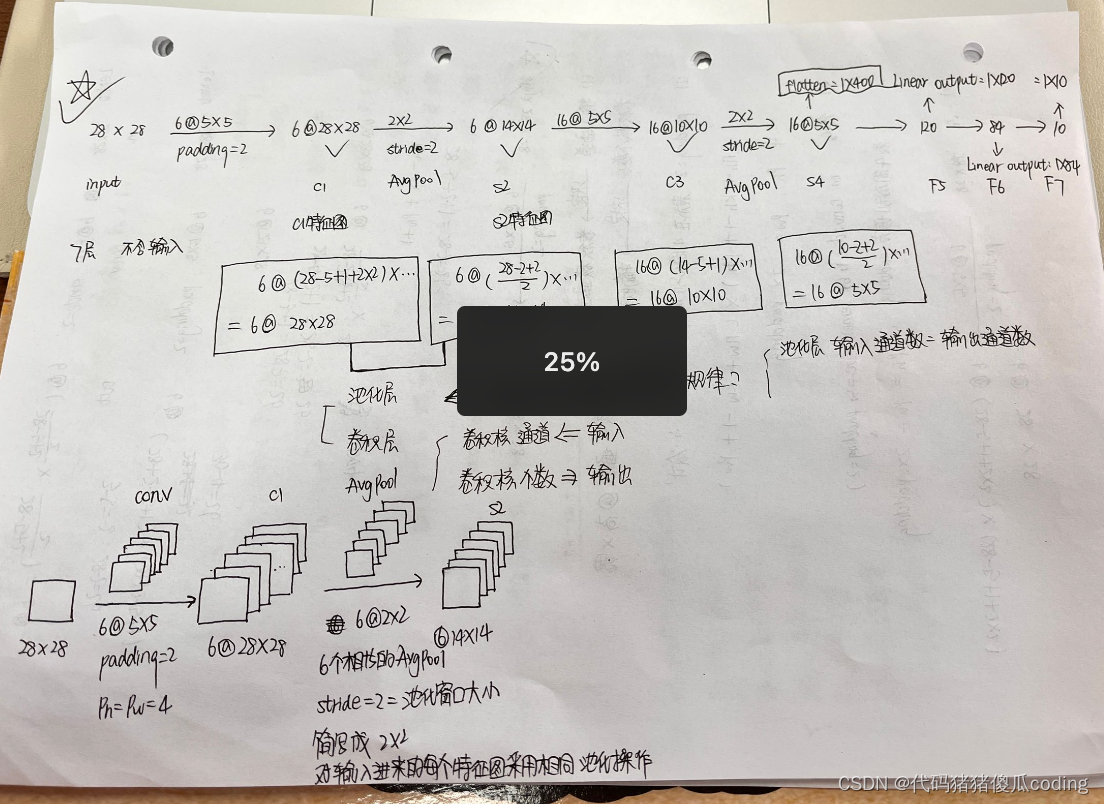 flatten=1X400 Linear output=1X120 =1X10
28 X 28 6@5X5 6@28X28 2X2 6@14X14 16@5X5 16@10X10 2X2 16@5X5 120 84 10
padding=2 stride=2 stride=2
Linear output:1X84
input C1 AvgPool S2 C3 AvgPool S4 F5 F6 F7
C1特征图 S2特征图
7层 不含输入
6@(28-5+1+2X2)X...
= 6@ 28X28
6@(28-2+2/2)X...
=
16@(14-5+1)X...
= 16@ 10X10
16@(10-2+2/2)X...
= 16@ 5X5
25%
规律:
池化层 输入通道数=输出通道数
池化层
卷积层
卷积核通道<=输入
卷积核个数=>输出
AvgPool
conv C1 S2
28X28
6@5X5
padding=2
Ph=Pw=4
6@28X28
6@2X2
6个相同的AvgPool
stride=2=池化窗口大小
简写成 2X2
对输入进来的每个特征图采用相同池化操作
6@14X14
CSDN @代码猪猪傻瓜coding